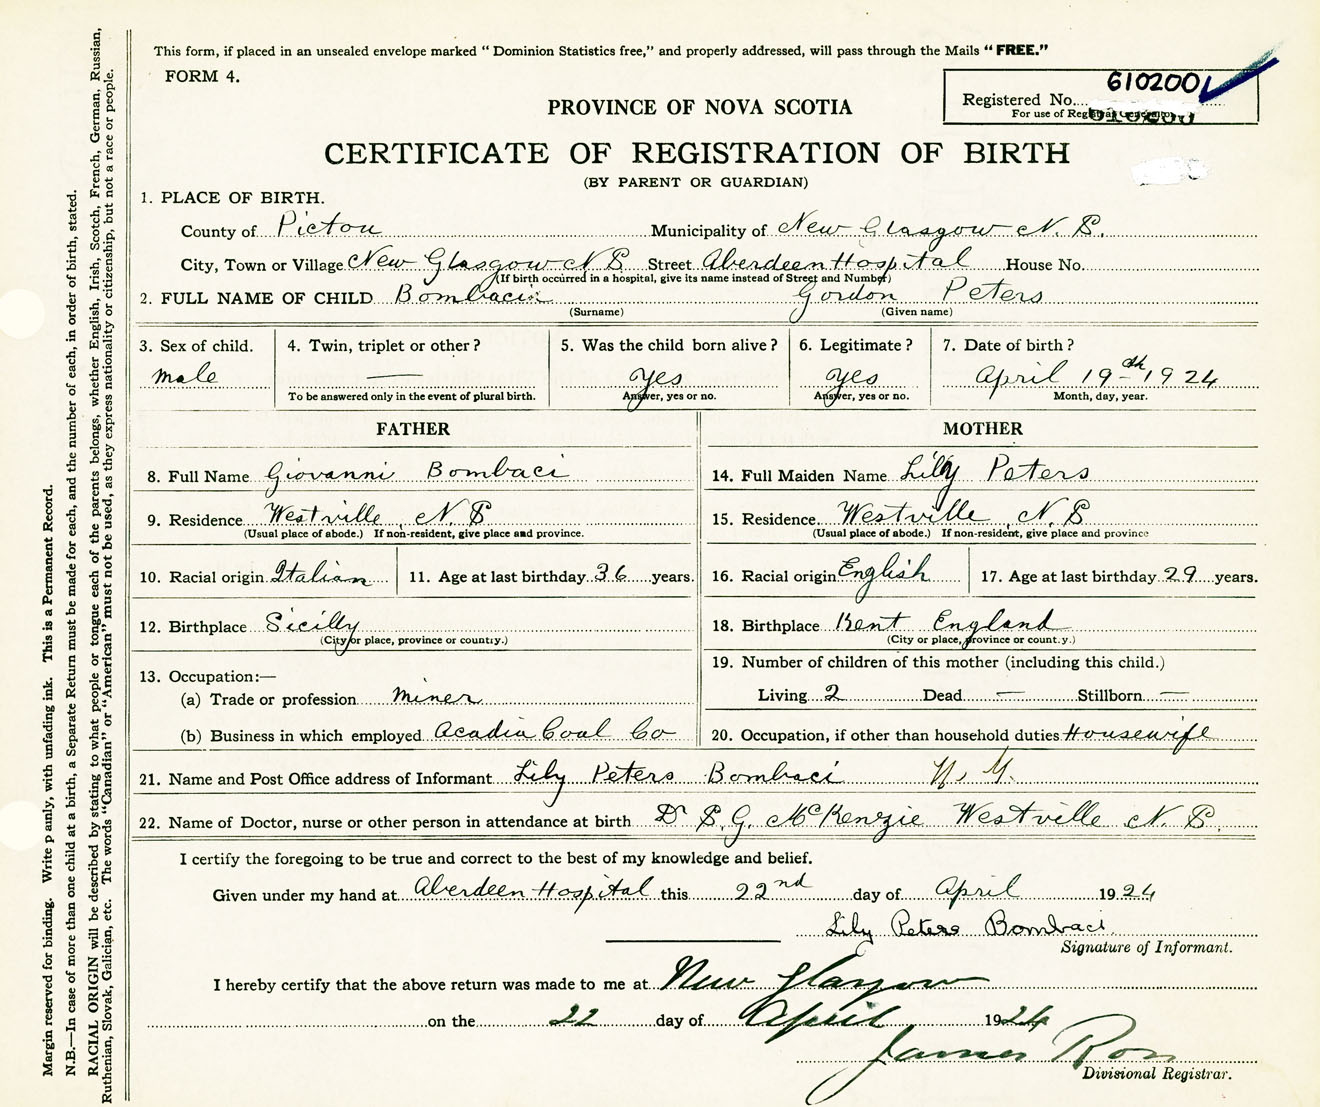 This form, if placed in an unsealed envelope marked "Dominion Statistics free," and properly addressed, will pass through the Mails "FREE."
FORM 4.
6102001
Registered No.
For use of Registrar General only
PROVINCE OF NOVA SCOTIA
CERTIFICATE OF REGISTRATION OF BIRTH
(BY PARENT OR GUARDIAN)
1. PLACE OF BIRTH.
County of Pictou Municipality of New Glasgow N. S.
City, Town or Village New Glasgow N S Street Aberdeen Hospital House No.
(If birth occurred in a hospital, give its name instead of Street and Number)
2. FULL NAME OF CHILD Bombaci Gordon Peters
(Surname) (Given name)
3. Sex of child. 4. Twin, triplet or other? 5. Was the child born alive? 6. Legitimate? 7. Date of birth?
Male — Yes Yes April 19th 1924
To be answered only in the event of plural birth. Answer, yes or no. Answer, yes or no. Month, day, year.
FATHER MOTHER
8. Full Name Giovanni Bombaci 14. Full Maiden Name Lily Peters
9. Residence Westville, N. S 15. Residence Westville, N. S
(Usual place of abode.) If non-resident, give place and province. (Usual place of abode.) If non-resident, give place and province
10. Racial origin Italian 11. Age at last birthday 36 years. 16. Racial origin English 17. Age at last birthday 29 years.
12. Birthplace Sicilly 18. Birthplace Kent England
(City or place, province or country.) (City or place, province or country.)
13. Occupation:— 19. Number of children of this mother (including this child.)
(a) Trade or profession Miner Living 2 Dead — Stillborn —
(b) Business in which employed Acadia Coal Co 20. Occupation, if other than household duties Housewife
21. Name and Post Office address of Informant Lily Peters Bombaci
22. Name of Doctor, nurse or other person in attendance at birth Dr S. G. McKenzie Westville N. S.
I certify the foregoing to be true and correct to the best of my knowledge and belief.
Given under my hand at Aberdeen Hospital this 22nd day of April 1924
Lily Peters Bombaci
Signature of Informant.
I hereby certify that the above return was made to me at New Glasgow
on the 22 day of April 1924
James
Divisional Registrar.
Margin reserved for binding. Write plainly, with unfading ink. This is a Permanent Record.
N.B.—In case of more than one child at a birth, a Separate Return must be made for each, and the number of each, in order of birth, stated.
RACIAL ORIGIN will be described by stating to what people or tongue each of the parents belongs, whether English, Irish, Scotch, French, German, Russian,
Ruthenian, Slovak, Galician, etc. The words "Canadian" or "American" must not be used, as they express nationality or citizenship, but not a race or people.